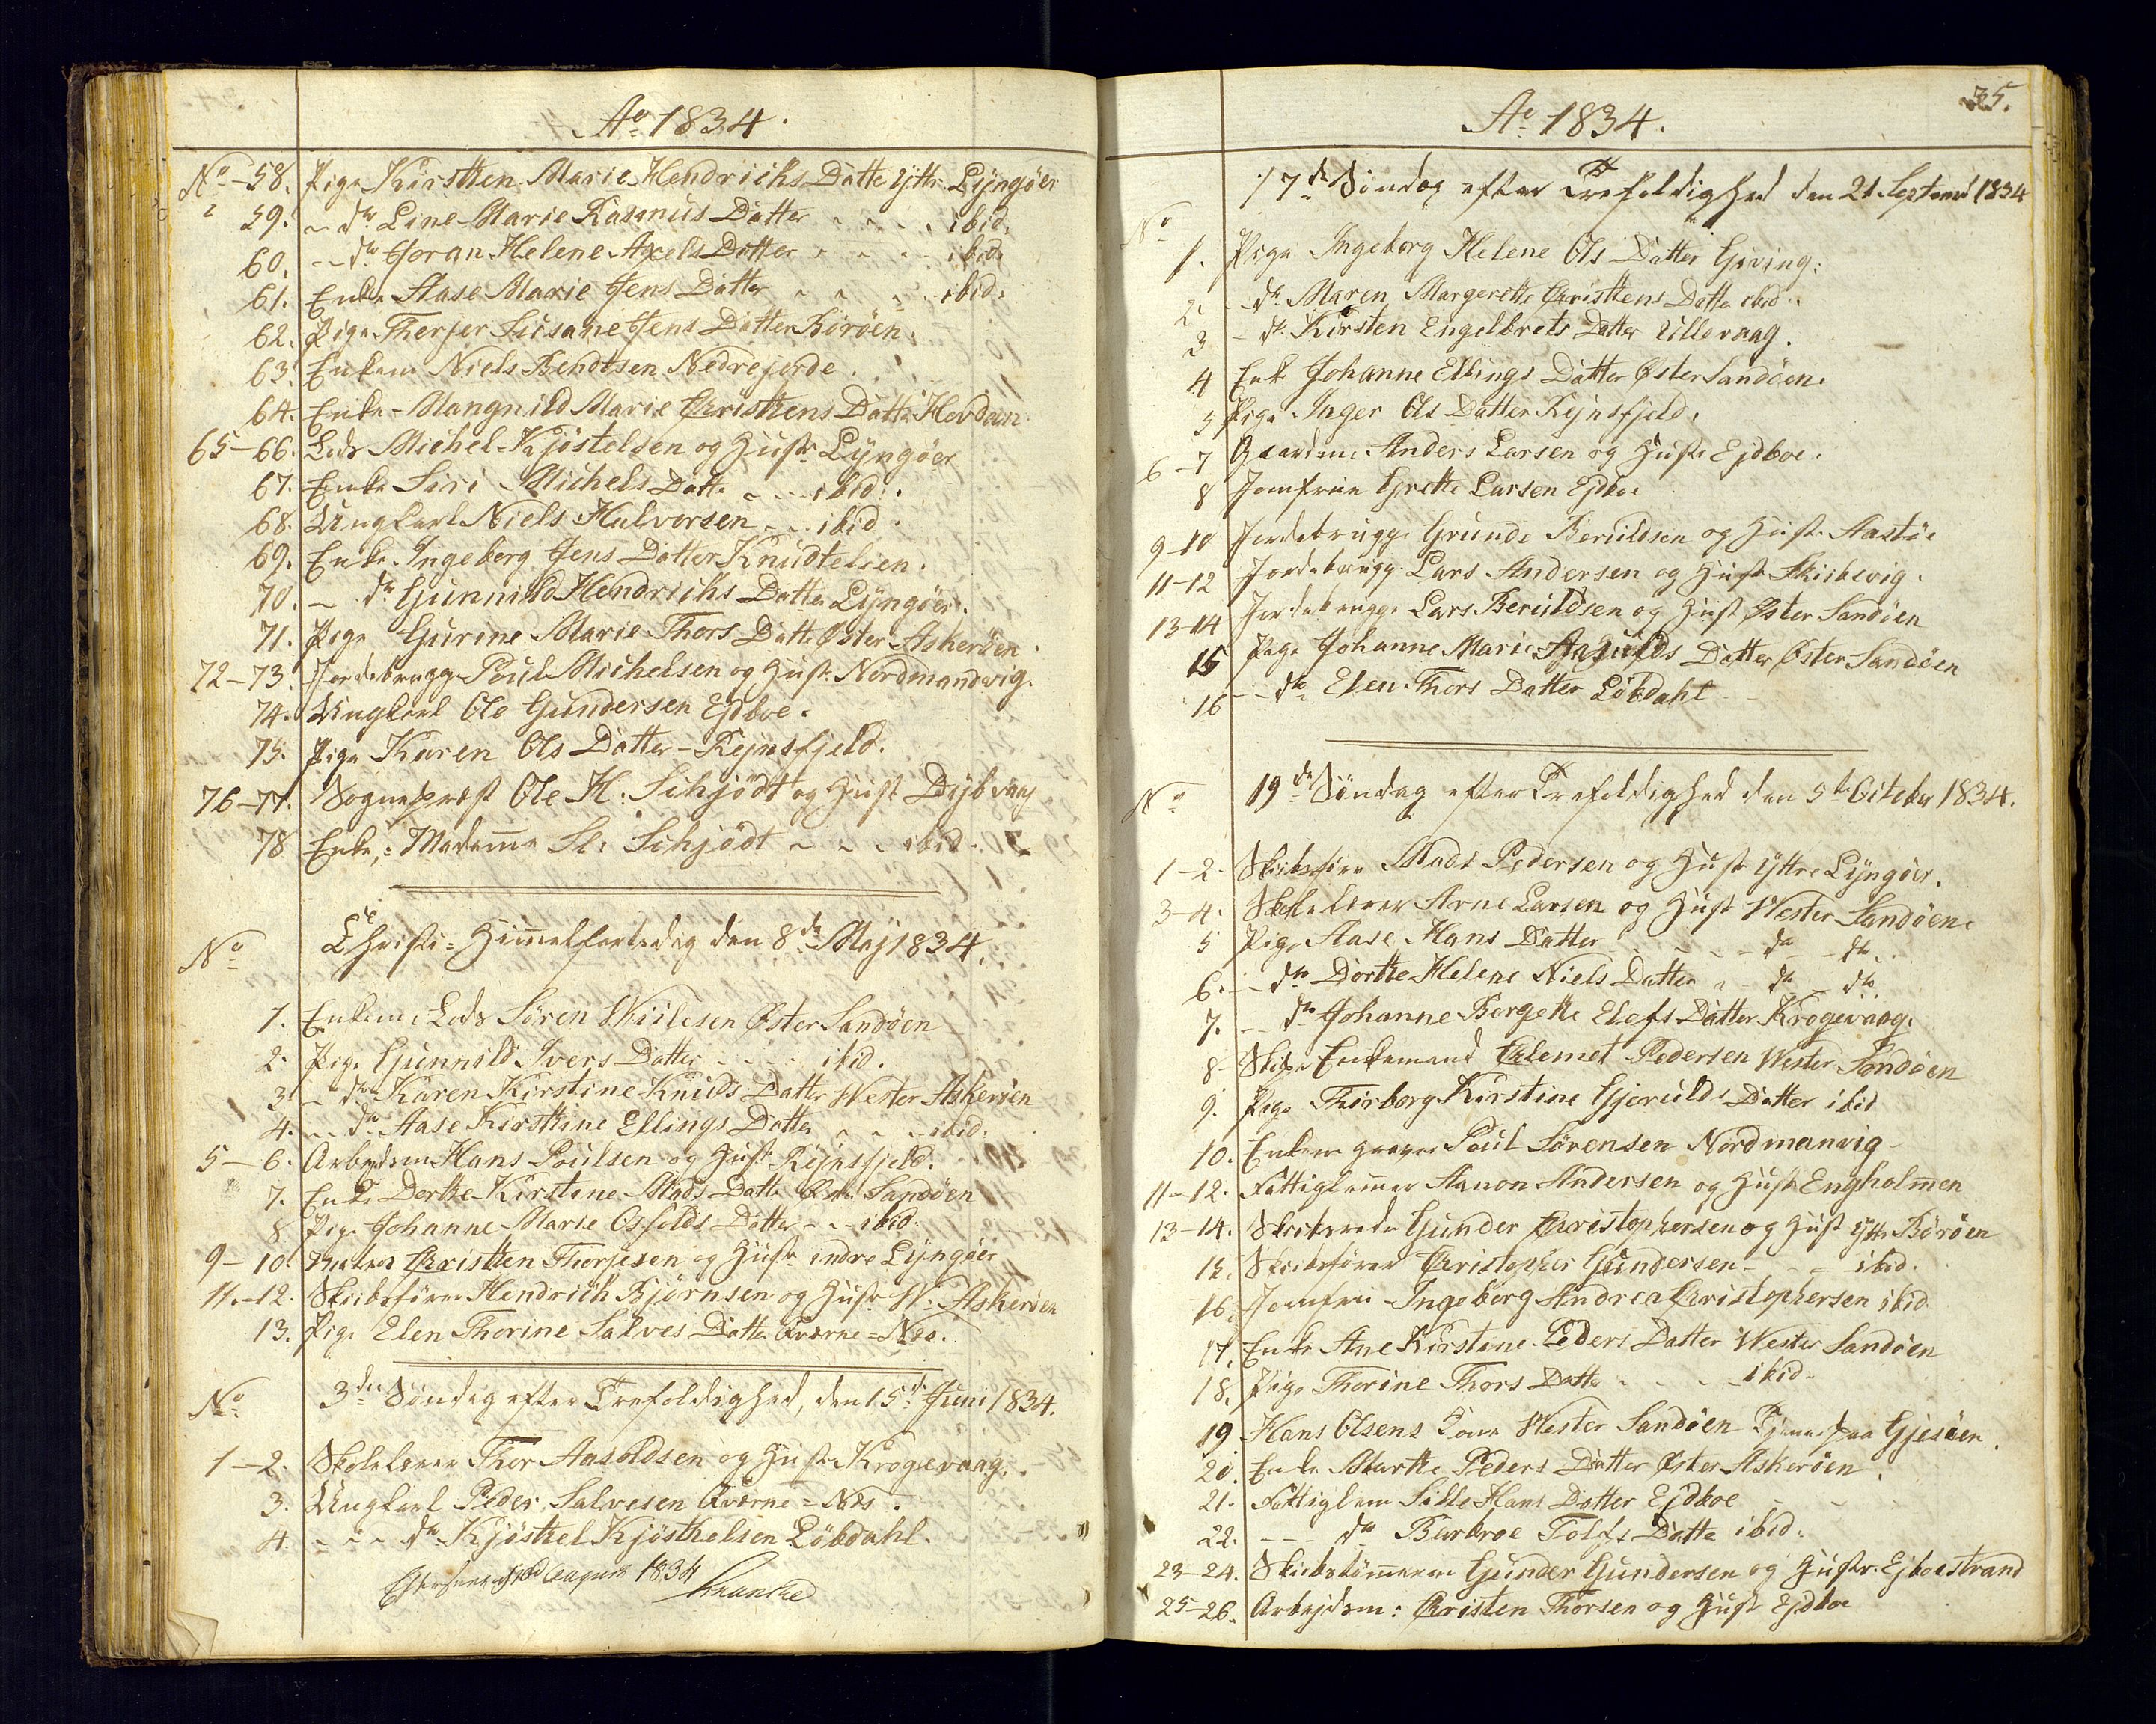 Aº 1834.
Nº 58. Pige Kirstten Marie Hendrichs Datter Yttr. Lÿngöer
59. — do Line Marie Rasmus Datter " " " ibid.
60. — do Joran Helene Axels Datter " " " ibid.
61. Enke Aase Marie Jens Datter " " " ibid.
62. Pige Therjer Susane Jens Datter Böröen.
63. Enkem Niels Bendtsen Nedrefjerde.
64. Enke Mangnild Marie Christens Datter
65–66. Lods Michel Kjöstelsen og Hustr Lÿngöer
67. Enke Siri Michels Datt. " " ibid.
68. Ungkarl Niels Halvorsen " ibid.
69. Enke Ingeborg Jens Datter Knudtelien.
70. — do Gunnild Hendrichs Datter Lÿngöer.
71. Pige Gurine Marie Thors Datt. Öster Askeröen.
72–73. Jordebrugg. Poul Michelsen og Hust. Nordmandvig.
74. Ungkarl Ole Gundersen Ejdboe.
75. Pige Karen Ols Datter Rejnsfjeld.
76–77. Sognepræst Ole H. Schjödt og Hust Dÿbvaag
78 Enke, Madame Sl. Schjödt " " " ibid.
Nº Christi Himmelfartsdag den 8de Maj 1834.
1. Enkem Lods Sören Wiilesen Öster Sandöen
2. Pige Gunnild Ivers Datter — ibid.
3. — do Karen Kirstine Knuds Datter Wester Askeröen
4. — do Aase Kirsttine Ellings Datter " " ibid.
5–6. Arbejdsm Hans Poulsen og Hustr Rejnsfjeld.
7. Enke Dorthe Kirstine Mads Datt. Sandöen
8 Pige Johanne Marie Osfelds Datter " ibid.
9–10. Christten Therjesen og Hustr indre Lÿngöer
11–12. Skibsförer Hendrich Björnsen og Hustr W. Askeröen
13. Pige Elen Thorine Salves Datter Qværne-Næs.
Nº 3die Söndag efter Trefoldighed, den 15de Juni 1834.
1–2. Skolelærer Thor Aasoldsen og Hustr Krogevaag.
3. Ungkarl Peder Salvesen Qværne-Næs.
4. " " do Kjösthel Kjösthelsen Löbdahl.
August 1834
Aº 1834.
35.
Nº 17de Söndag efter Trefoldighed den 21 Septemb 1834
1. Pige Ingeborg Helene Ols Datter Gjeving.
2. — do Maren Margerethe Christtens Datter ibid.
3 — do Kirsten Engelbrets Datter Ullevaag.
4 Enke Johanne Ellings Datter Öster Sandöen.
5 Pige Inger Ols Datter Rejnsfjeld.
6–7 Gaardm. Anders Larsen og Hustr Ejdboe.
8 Jomfrue Grethe Larsen Ejdboe
9–10 Jordebrugge Grunde Beruldsen og Hust. Aastöe
11–12 Jordebrugg. Lars Andersen og Hustr Skibevig.
13–14 Jordebrugge Lars Beruldsen og Hust Öster Sandöen
15 Pige Johanne Marie Datter Öster Sandöen
16 — do Elen Thors Datter Löbdahl
Nº 19de Söndag efter Trefoldighed den 5te October 1834.
1–2. Skibsförer Mads Pedersen og Hustr Yttre Lÿngöer.
3–4. Skolelærer Arne Larsen og Hust Wester Sandöen.
5 Pige Aase Hans Datter — do — do
6. — do Dorthe Helene Niels Datter " do — do
7. — do Johanne Bergethe Elefs Datter Krogevaag.
8 Enkemand Clemet Pedersen Wester Sandöen
9. Pige Thorborg Kirstine Gjerulds Datter ibid
10. Enkem Poul Sörensen Nordmanvig
11–12. Fattiglemmer Aanon Andersen og Hustr Engholmen
13–14. Gunder Christophersen og Hust Yttr. Böröen
15. Skibsförer Christopher Gundersen — ibid.
16. Jomfru Ingeborg Andrea Christophersen ibid.
17. Enke Ane Kirstine Peders Datter Wester Sandöen
18. Pige Thorine Thors Datter — ibid.
19 Hans Olsens Wester Sandöen paa Gjesöen.
20. Enke Marthe Peders Datter Öster Askeröen.
21. Fattiglem Sille Hans Datter Ejdboe
22. — do Barbroe Tolfs Datte ibid.
23–24. Skibstömmerm Gunder Gundersen og Hustr. Ejboestrand
25–26. Arbejdsm: Christen Thorsen og Hustr Ejdboe